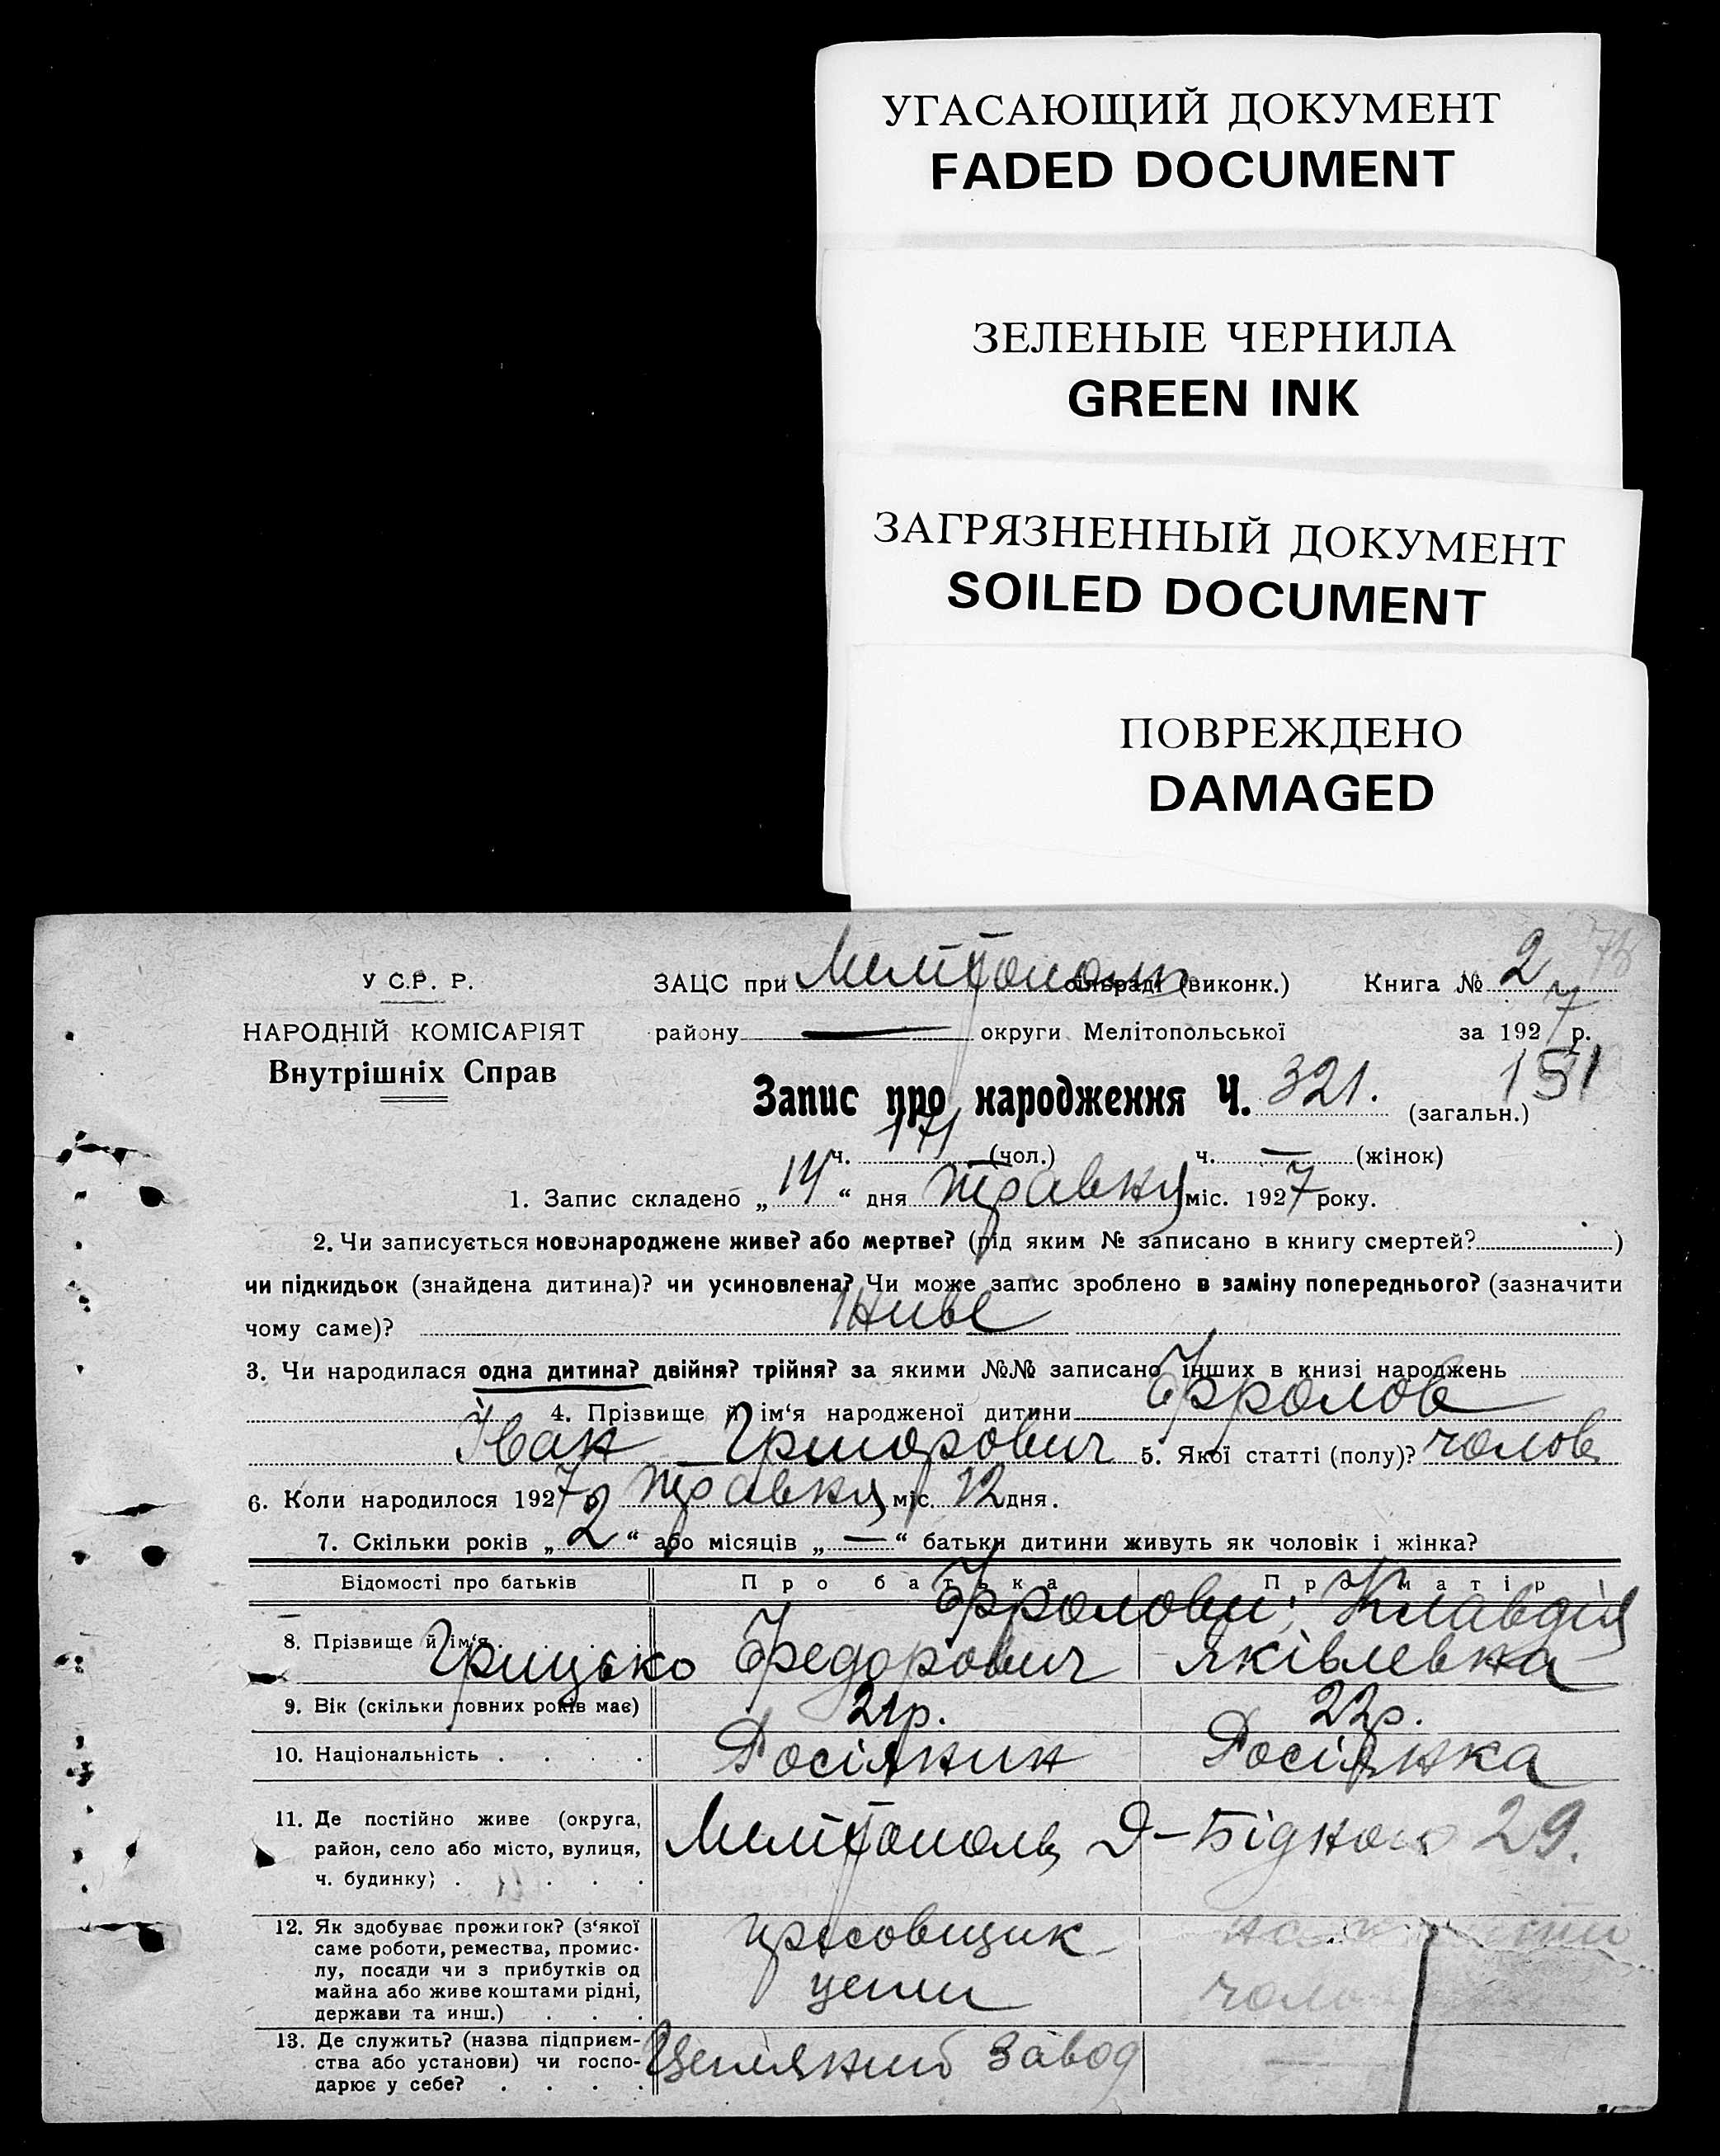 УГАСАЮЩИЙ ДОКУМЕНТ
FADED DOCUMENT
ЗЕЛЕНЫЕ ЧЕРНИЛА
GREEN INK
ЗАГРЯЗНЕННЫЙ ДОКУМЕНТ
SOILED DOCUMENT
ПОВРЕЖДЕНО
DAMAGED
У С.Р. Р. ЗАЦС при сільраді (виконк.) Книга № 2
НАРОДНІЙ КОМІСАРІЯТ району — округи Мелітопольської за 1927 р.
Внутрішніх Справ
151
Запис про народження Ч. 321. (загальн.)
ч. 171 (чол.) ч. — (жінок)
1. Запис складено „14“ дня травня міс. 1927 року.
2. Чи записується новонароджене живе? або мертве? (під яким № записано в книгу смертей? )
чи підкидьок (знайдена дитина)? чи усиновлена? Чи може запис зроблено в заміну попереднього? (зазначити
чому саме)? Живе
3. Чи народилася одна дитина? двійня? трійня? за якими №№ записано інших в книзі народжень
4. Прізвище й ім‘я народженої дитини Фролов
Іван Григорович 5. Якої статті (полу)? чолов
6. Коли народилося 1927 р травня міс. 12 дня.
7. Скільки років „2“ або місяців „—“ батьки дитини живуть як чоловік і жінка?
Відомості про батьків Про батька Про матір
Фролови: Клавдія
8. Прізвище й ім‘я Грицько Федорович Яківлевна
9. Вік (скільки повних років має) 21р. 22р.
10. Національність Росіянин Росіянка
11. Де постійно живе (округа,
район, село або місто, вулиця, Мелітополь Д-Бідного 29.
ч. будинку)
12. Як здобуває прожиток? (з‘якої
саме роботи, ремества, промис-
лу, посади чи з прибутків од
майна або живе коштами рідні,
держави та инш.)
13. Де служить? (назва підприєм-
ства або установи) чи госпо- завод —
дарює у себе?